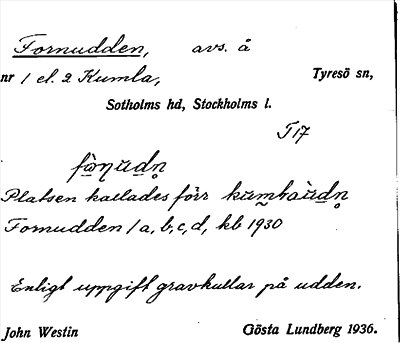 Fornudden, avs. å
nr 1 el. 2 Kumla, Tyresö sn,
Sotholms hd, Stockholms l.
T 17
Platsen kallades förr
Fornudden 1a, b, c, d, kb 1930
Enligt uppgift gravkullar på udden.
John Westin Gösta Lundberg 1936.